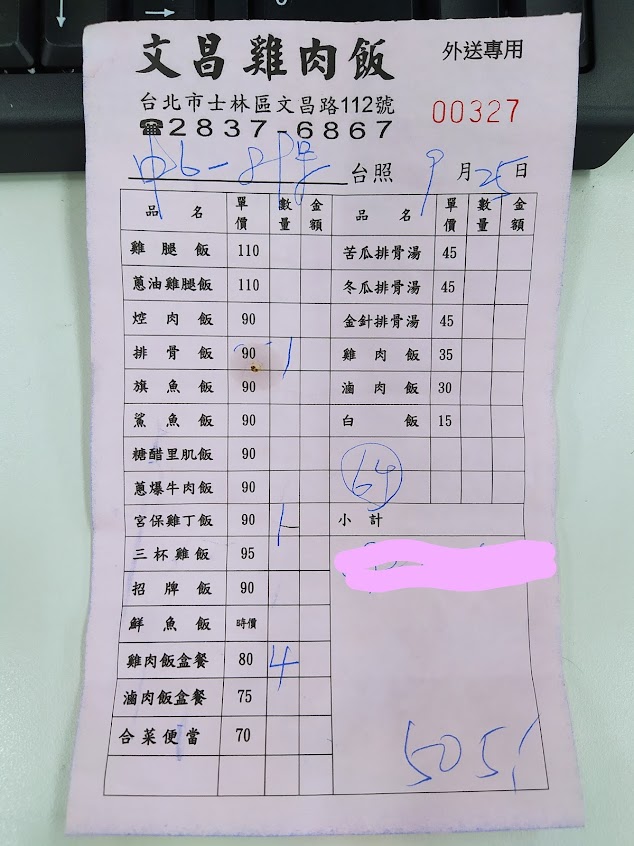 文昌雞肉飯 外送專用
台北市士林區文昌路112號 00327
☎2837-6867
台照 9月25日
品名 單價 數量 金額 品名 單價 數量 金額
雞腿飯 110 苦瓜排骨湯 45
蔥油雞腿飯 110 冬瓜排骨湯 45
焢肉飯 90 金針排骨湯 45
排骨飯 90 1 雞肉飯 35
旗魚飯 90 滷肉飯 30
鯊魚飯 90 白飯 15
糖醋里肌飯 90
蔥爆牛肉飯 90 64
宮保雞丁飯 90 小計
三杯雞飯 95
招牌飯 90
鮮魚飯 時價
雞肉飯盒餐 80 4
滷肉飯盒餐 75
合菜便當 70
505